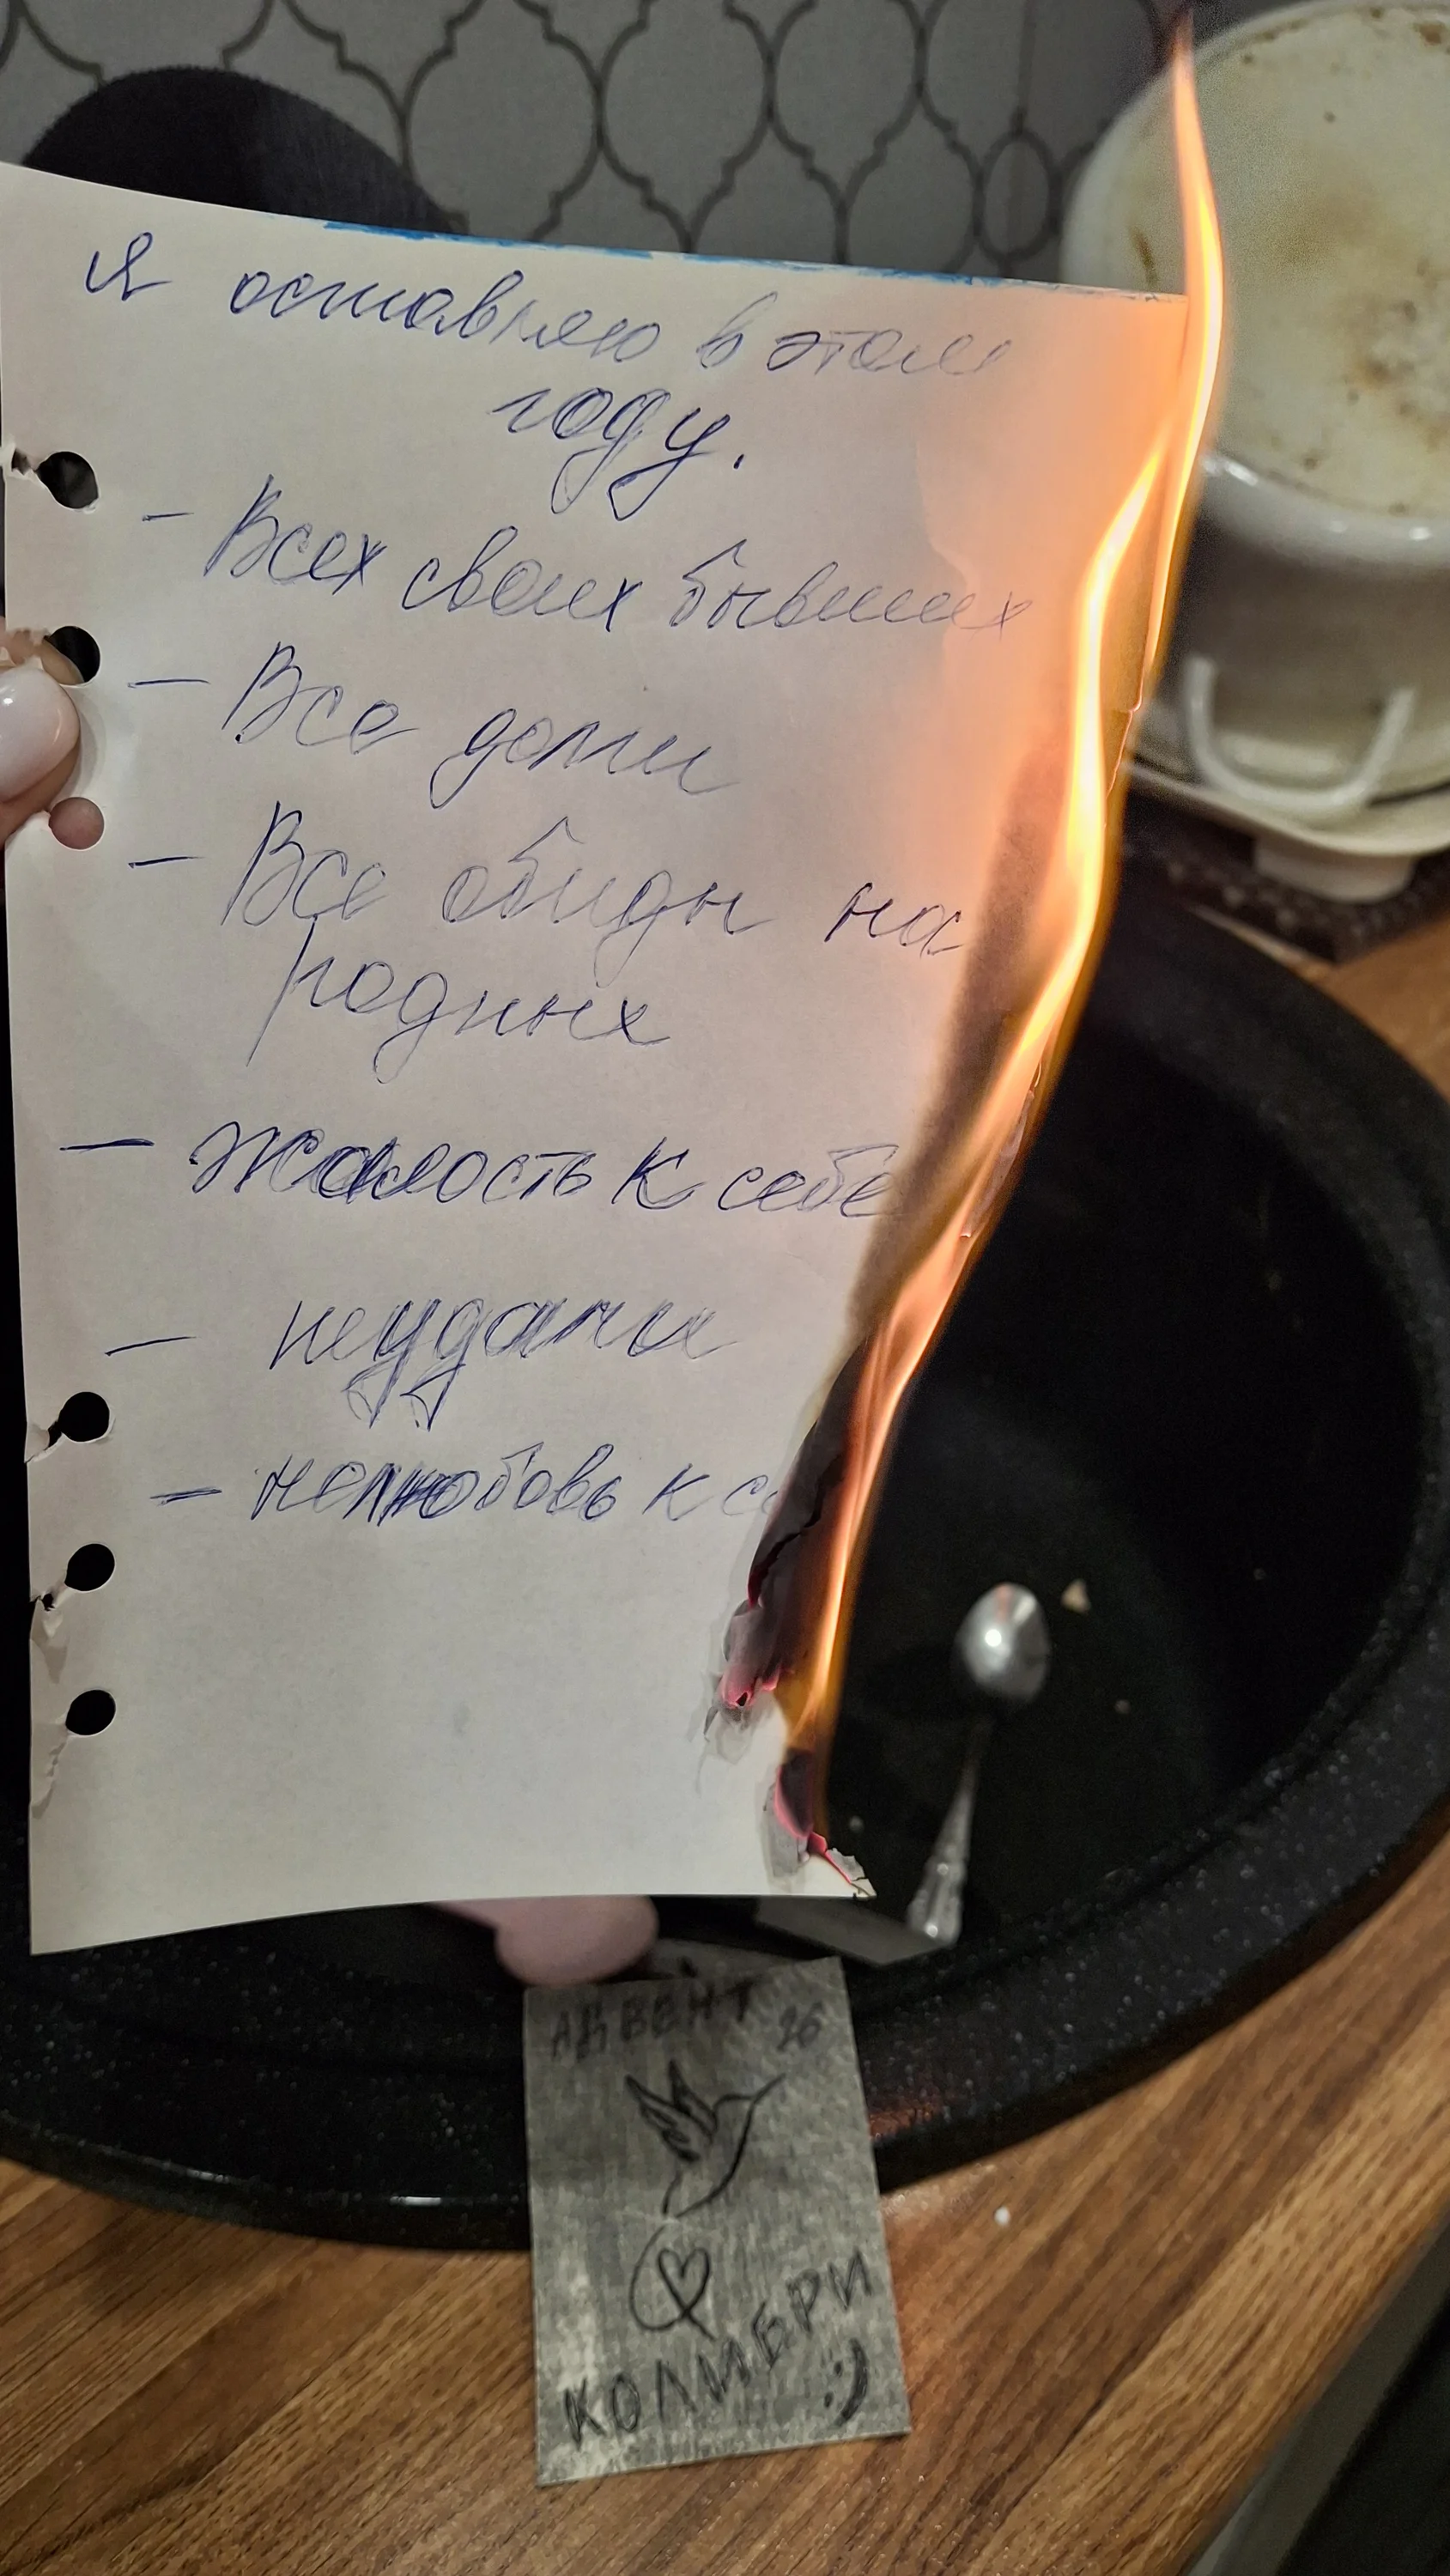 Я оставляю в этом
году.
- Всех своих бывших
- Все долги
- Все обиды на
родных
- жалость к себе
- неудачи
- нелюбовь к се
АДВЕНТ 26
КОЛИБРИ
:)